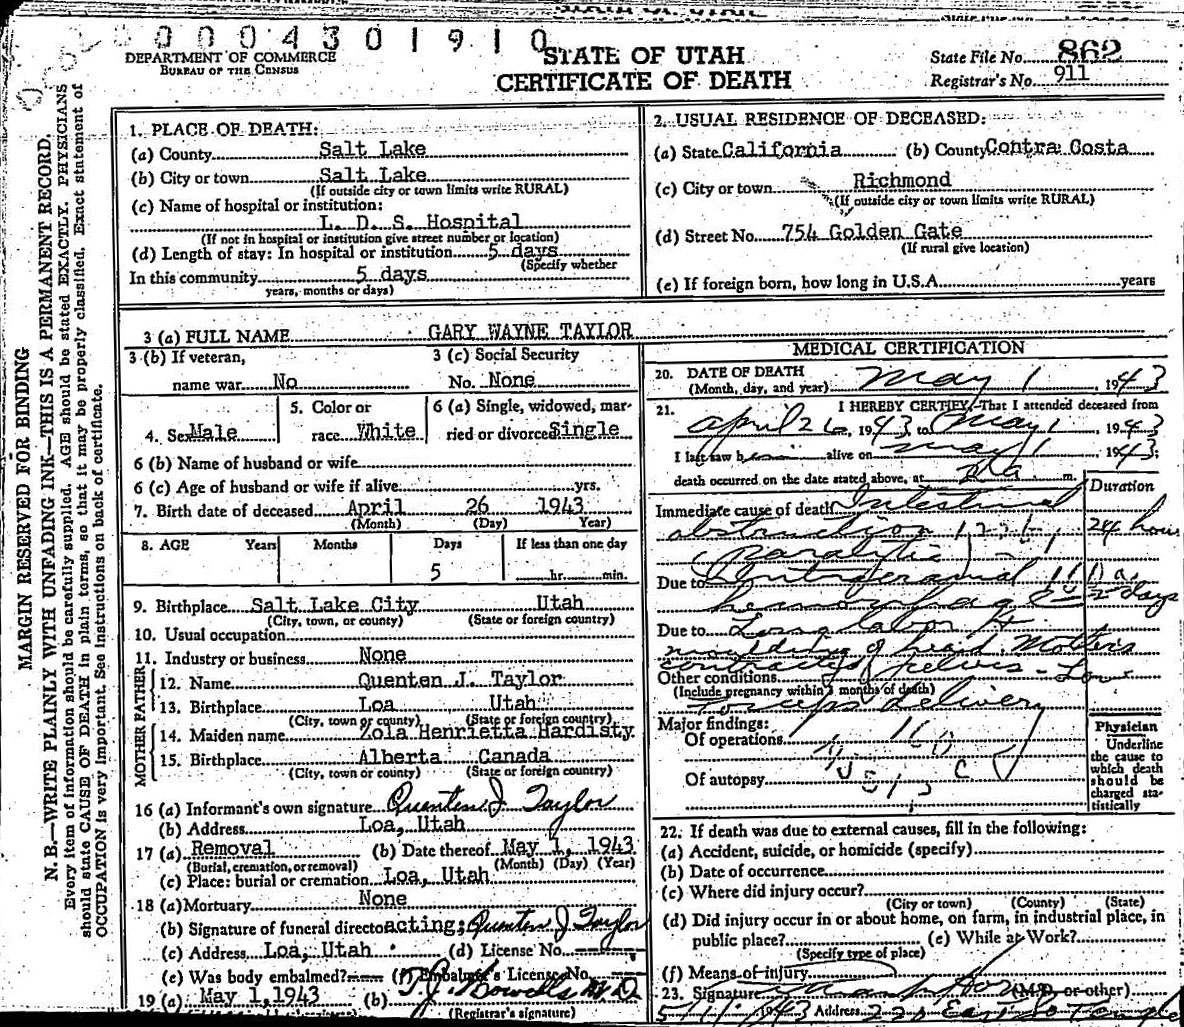 0 0 0 4 3 0 1 9 1 0
DEPARTMENT OF COMMERCE
BUREAU OF THE CENSUS
STATE OF UTAH
CERTIFICATE OF DEATH
State File No. 862
Registrar's No. 911
MARGIN RESERVED FOR BINDING
N. B.—WRITE PLAINLY WITH UNFADING INK—THIS IS A PERMANENT RECORD.
Every item of information should be carefully supplied. AGE should be stated EXACTLY. PHYSICIANS
should state CAUSE OF DEATH in plain terms, so that it may be properly classified. Exact statement of
OCCUPATION is very important. See instructions on back of certificate.
1. PLACE OF DEATH:
(a) County Salt Lake
(b) City or town Salt Lake
(If outside city or town limits write RURAL)
(c) Name of hospital or institution:
L. D. S. Hospital
(If not in hospital or institution give street number or location)
(d) Length of stay: In hospital or institution 5 days
(Specify whether
In this community 5 days
years, months or days)
2. USUAL RESIDENCE OF DECEASED:
(a) State California (b) County Contra Costa
(c) City or town Richmond
(If outside city or town limits write RURAL)
(d) Street No. 754 Golden Gate
(If rural give location)
(e) If foreign born, how long in U.S.A. years
3 (a) FULL NAME GARY WAYNE TAYLOR
3 (b) If veteran, 3 (c) Social Security
name war No No. None
4. Sex Male 5. Color or race White 6 (a) Single, widowed, married or divorced Single
6 (b) Name of husband or wife
6 (c) Age of husband or wife if alive yrs.
7. Birth date of deceased April 26 1943
(Month) (Day) Year)
8. AGE Years Months Days If less than one day
5 hr. min.
9. Birthplace Salt Lake City Utah
(City, town, or county) (State or foreign country)
10. Usual occupation
11. Industry or business None
FATHER
12. Name Quenten J. Taylor
13. Birthplace Loa Utah
(City, town or county) (State or foreign country)
MOTHER
14. Maiden name Zola Henrietta Hardisty
15. Birthplace Alberta Canada
(City, town or county) (State or foreign country)
16 (a) Informant's own signature Quenten J Taylor
(b) Address Loa, Utah
17 (a) Removal (b) Date thereof May 1, 1943
(Burial, cremation, or removal) (Month) (Day) (Year)
(c) Place: burial or cremation Loa, Utah
18 (a) Mortuary None
(b) Signature of funeral director acting: Quenten J Taylor
(c) Address Loa, Utah (d) License No.
(e) Was body embalmed? (f) Embalmer's License No.
19 (a) May 1, 1943 (b) T. J. Howells M D
(Registrar's signature)
MEDICAL CERTIFICATION
20. DATE OF DEATH
(Month, day, and year) May 1, 1943
21. I HEREBY CERTIFY, That I attended deceased from
April 26, 1943, to May 1, 1943
I last saw him alive on May 1, 1943;
death occurred on the date stated above, at m.
Duration
Immediate cause of death Intestinal
obstruction 24 hours
(paralytic)
Due to Intracranial
hemorrhage days
Due to Long labor &
moulding of head. Mothers
contracted pelvis - Low
Other conditions
(Include pregnancy within 3 months of death)
forceps delivery
Major findings:
Of operations
Of autopsy
Physician
Underline
the cause to
which death
should be
charged sta-
tistically
22. If death was due to external causes, fill in the following:
(a) Accident, suicide, or homicide (specify)
(b) Date of occurrence
(c) Where did injury occur?
(City or town) (County) (State)
(d) Did injury occur in or about home, on farm, in industrial place, in
public place? (e) While at Work?
(Specify type of place)
(f) Means of injury
23. Signature (M.D. or other)
5/1/1943 Address East So Temple